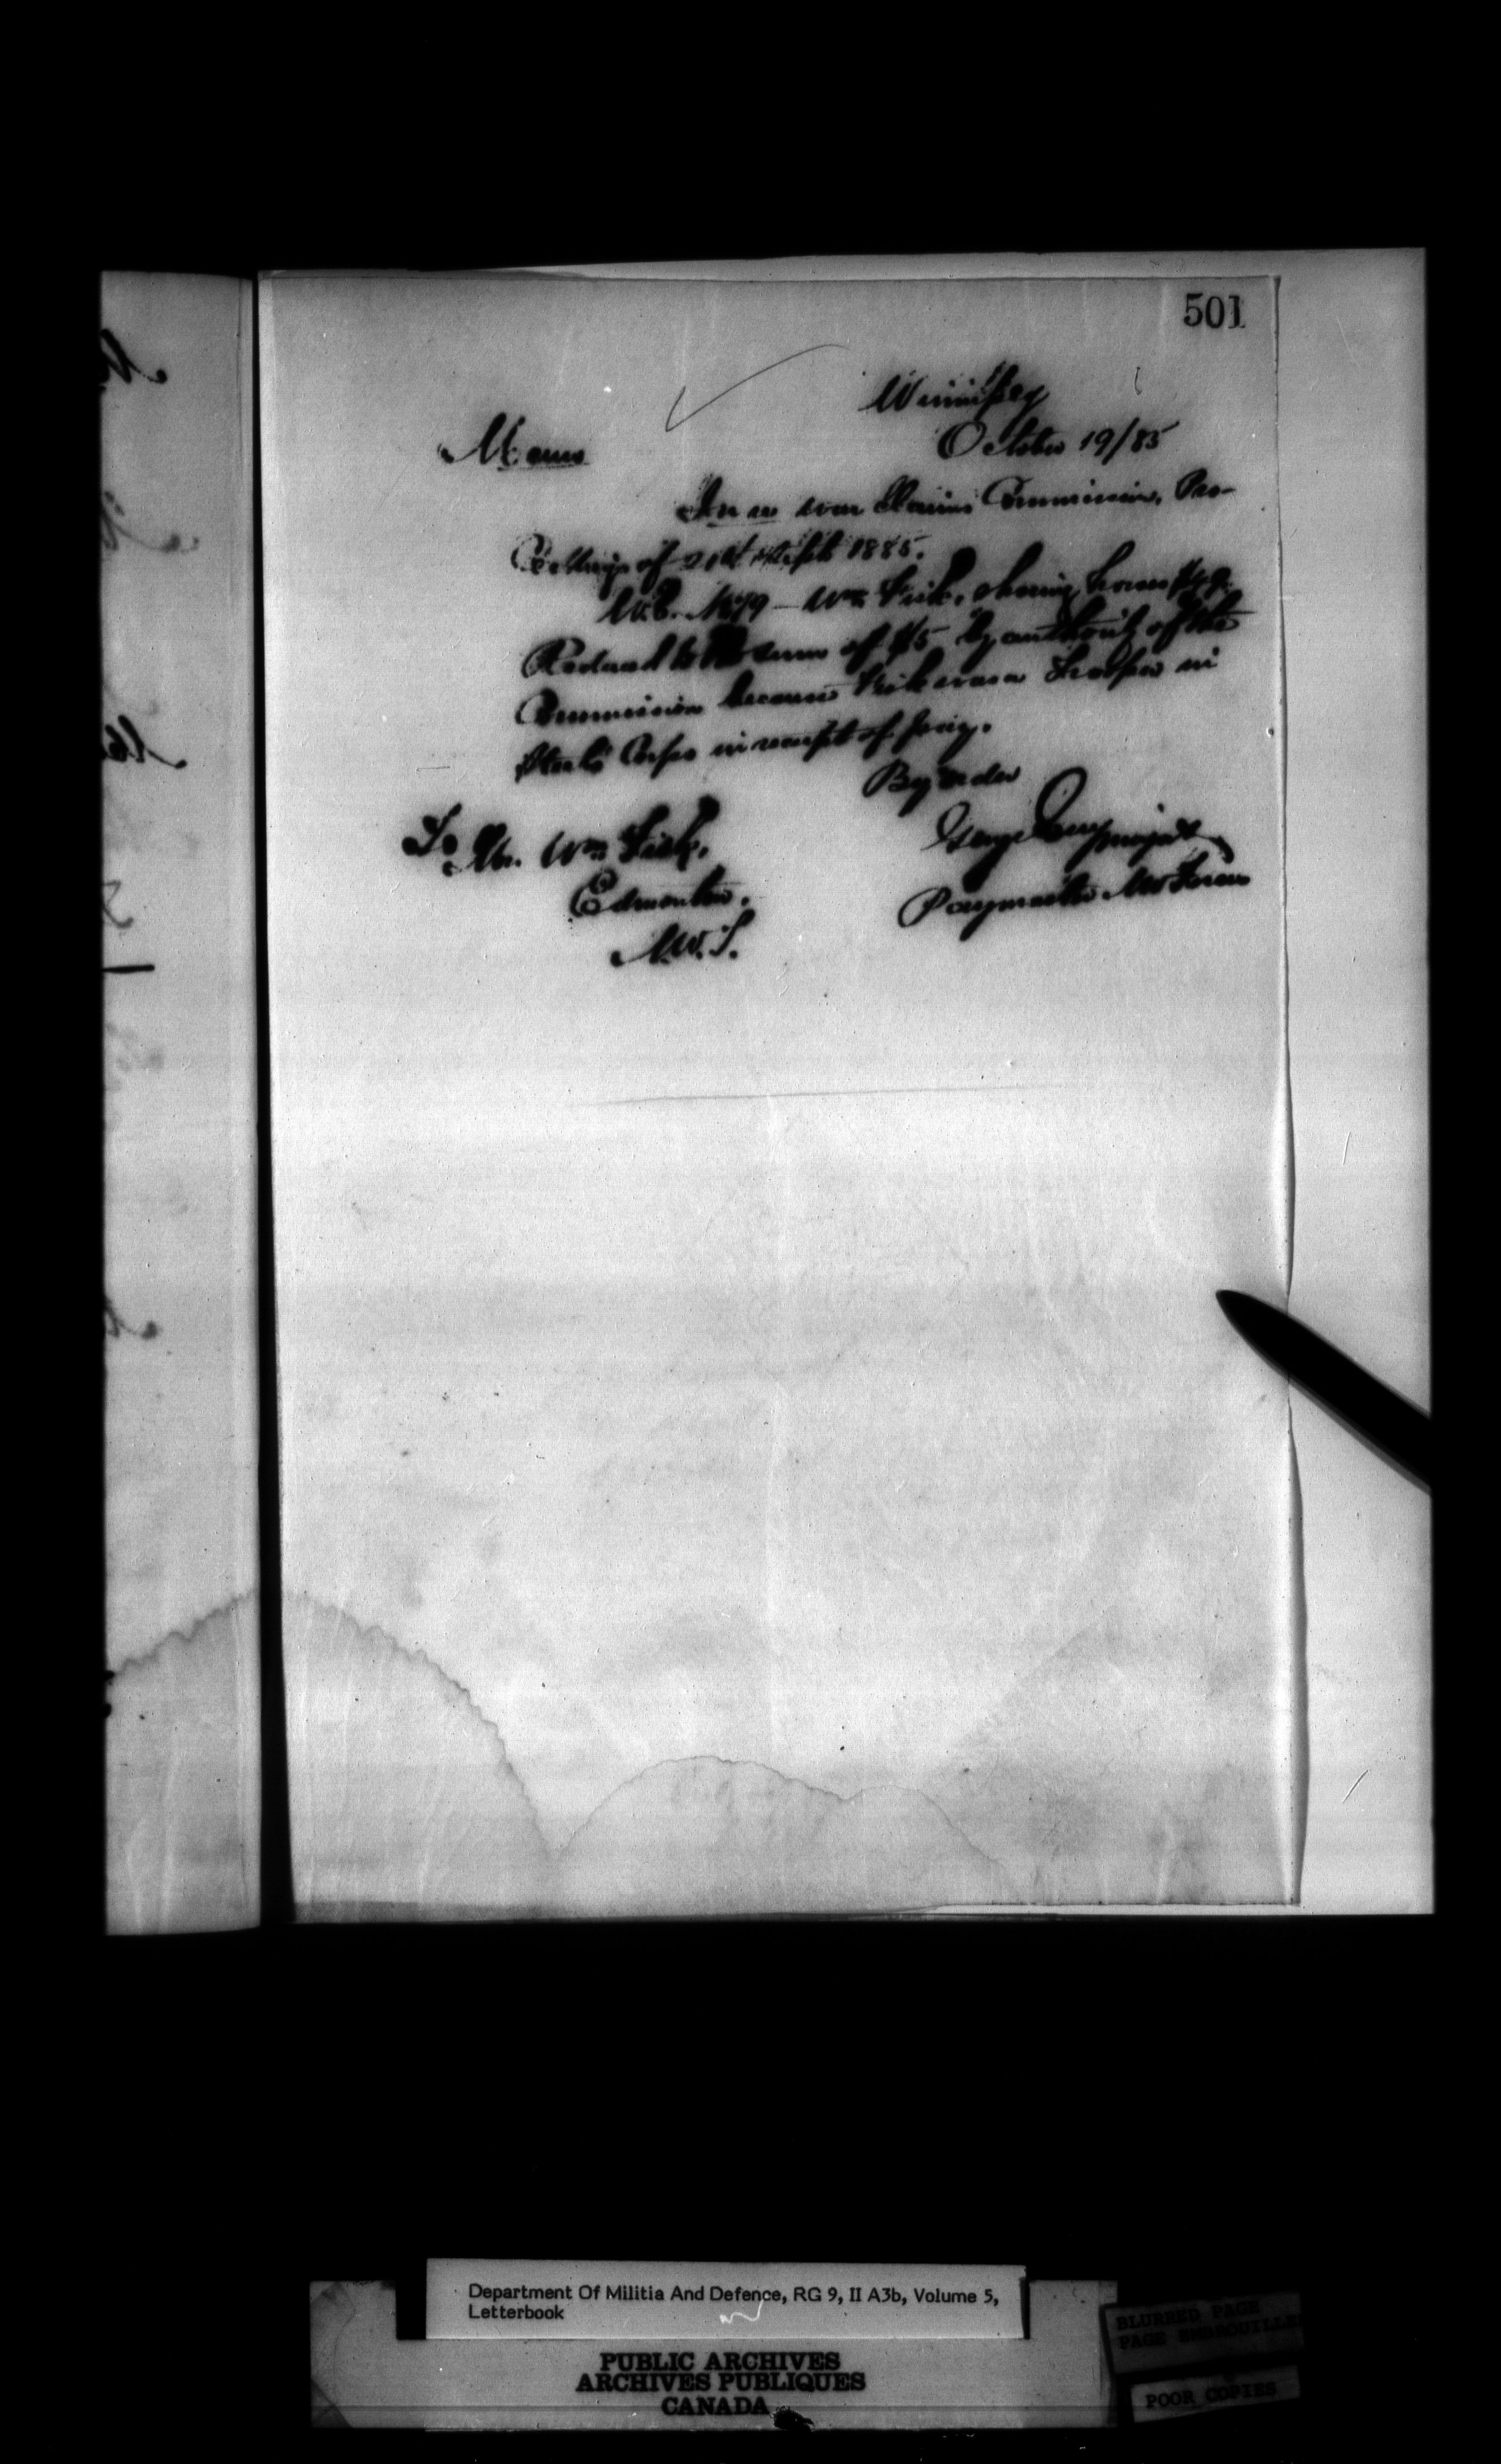 501
Winnipeg
October 19/85
Memo
In re War Claims Commission, Pro-
ceedings of 21st Sept 1885.
W.C. No 79 – Wm Fisk, shoeing horses $49.
Reduced to the sum of $5 by authority of the
Commission because Fisk was a Trooper in
Steele's Corps in receipt of pay.
By order
George Major
Paymaster NW Forces
To Mr. Wm Fisk,
Edmonton,
N.W.T.
Department Of Militia And Defence, RG 9, II A3b, Volume 5,
Letterbook
PUBLIC ARCHIVES
ARCHIVES PUBLIQUES
CANADA
BLURRED PAGE
PAGE EMBROUILLEE
POOR COPIES